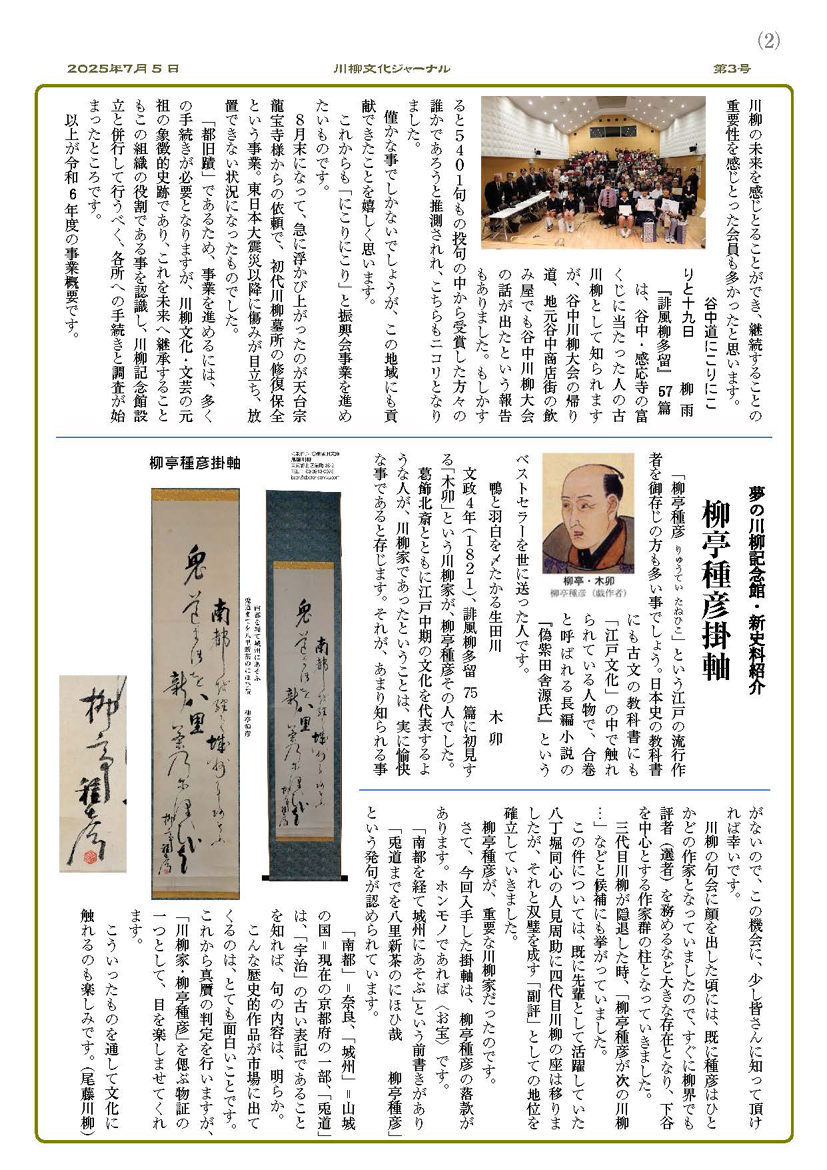 (2)
2025年7月5日
川柳文化ジャーナル
第3号
川柳の未来を感じとることができ、継続することの
重要性を感じとった会員も多かったと思います。
谷中道にこりにこ
りと十九日　柳　雨
『誹風柳多留』57篇
は、谷中・感応寺の富
くじに当たった人の古
川柳として知られます
が、谷中川柳大会の帰り
道、地元谷中商店街の飲
み屋でも谷中川柳大会
の話が出たという報告
もありました。もしかす
ると5401句もの投句の中から受賞した方々の
誰かであろうと推測されれ、こちらもニコリとなり
ました。
僅かな事でしかないでしょうが、この地域にも貢
献できたことを嬉しく思います。
これからも「にこりにこり」と振興会事業を進め
たいものです。
8月末になって、急に浮かび上がったのが天台宗
龍宝寺様からの依頼で、初代川柳墓所の修復保全
という事業。東日本大震災以降に傷みが目立ち、放
置できない状況になったものでした。
「都旧蹟」であるため、事業を進めるには、多く
の手続きが必要となりますが、川柳文化・文芸の元
祖の象徴的史跡であり、これを未来へ継承すること
もこの組織の役割である事を認識し、川柳記念館設
立と併行して行うべく、各所への手続きと調査が始
まったところです。
以上が令和6年度の事業概要です。
夢の川柳記念館・新史料紹介
柳亭種彦掛軸
「柳亭種彦 りゅうてい たねひこ」という江戸の流行作
者を御存じの方も多い事でしょう。日本史の教科書
にも古文の教科書にも
「江戸文化」の中で触れ
られている人物で、合巻
と呼ばれる長編小説の
『偽紫田舎源氏』という
ベストセラーを世に送った人です。
柳亭・木卯
柳亭種彦（戯作者）
鴨と羽白を〆たかる生田川　木　卯
文政4年(1821)、誹風柳多留75篇に初見す
る「木卯」という川柳家が、柳亭種彦その人でした。
葛飾北斎とともに江戸中期の文化を代表するよ
うな人が、川柳家であったということは、実に愉快
な事であると存じます。それが、あまり知られる事
がないので、この機会に、少し皆さんに知って頂け
れば幸いです。
川柳の句会に顔を出した頃には、既に種彦はひと
かどの作家となっていましたので、すぐに柳界でも
評者（選者）を務めるなど大きな存在となり、下谷
を中心とする作家群の柱となっていきました。
三代目川柳が隠退した時、「柳亭種彦が次の川柳
…」などと候補にも挙がっていました。
この件については、既に先輩として活躍していた
八丁堀同心の人見周助に四代目川柳の座は移りま
したが、それと双璧を成す「副評」としての地位を
確立していきました。
柳亭種彦が、重要な川柳家だったのです。
さて、今回入手した掛軸は、柳亭種彦の落款が
あります。ホンモノであれば〈お宝〉です。
「南都を経て城州にあそぶ」という前書きがあり
「兎道までを八里新茶のにほひ哉　柳亭種彦」
という発句が認められています。
「南都」＝奈良、「城州」＝山城
の国＝現在の京都府の一部、「兎道」
は、「宇治」の古い表記であること
を知れば、句の内容は、明らか。
こんな歴史的作品が市場に出て
くるのは、とても面白いことです。
これから真贋の判定を行いますが、
「川柳家・柳亭種彦」を偲ぶ物証の
一つとして、目を楽しませてくれ
ます。
こういったものを通して文化に
触れるのも楽しみです。（尾藤川柳）
柳亭種彦掛軸
南都を経て城州にあそぶ
兎道までを八里新茶のにほひ哉　柳亭種彦
柳亭種彦